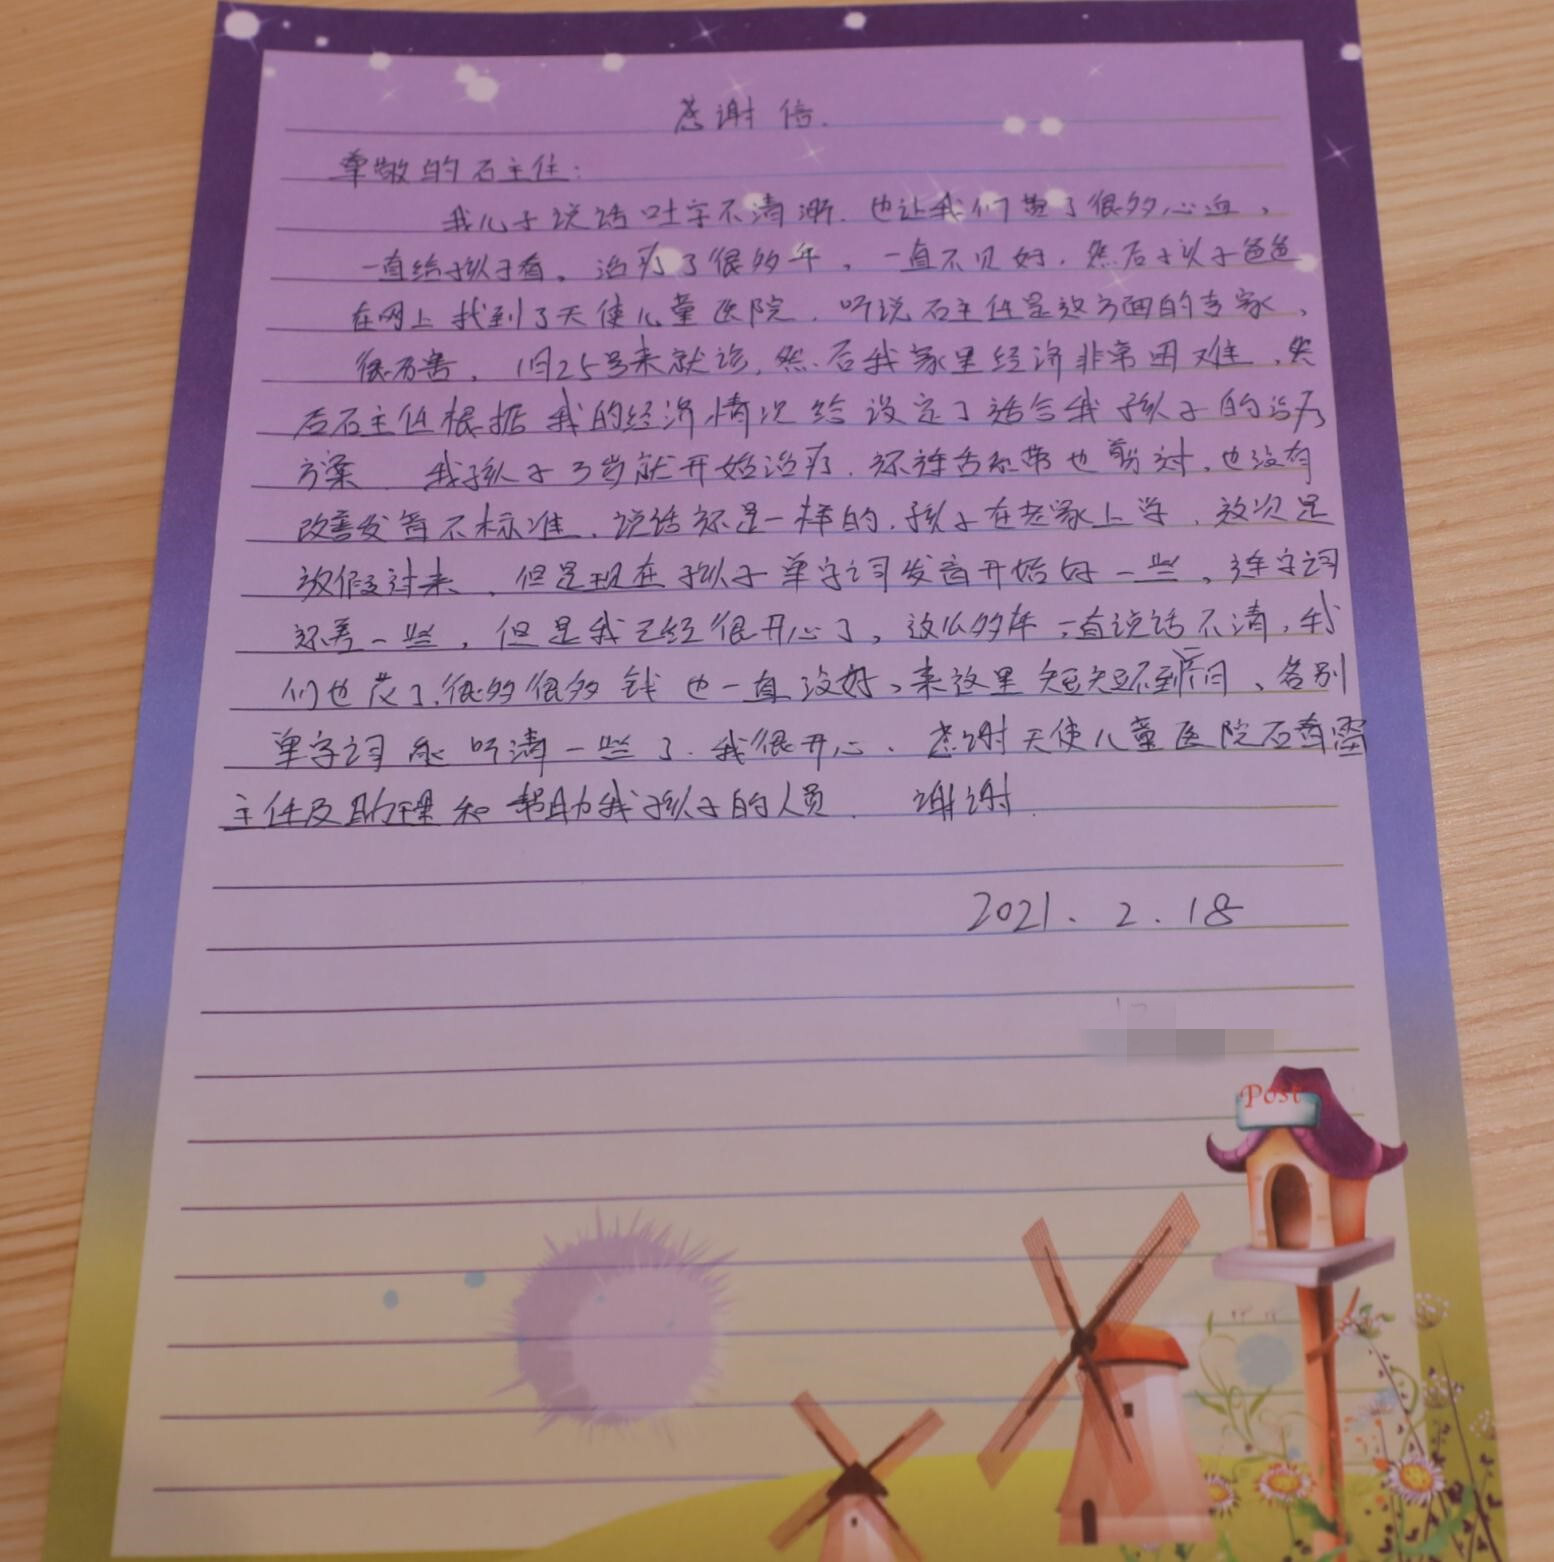 感谢信.
尊敬的石主任:
我儿子说话吐字不清淅.也让我们费了很多心血,
一直给孩子看。治疗了很多年,一直不见好.然后孩子爸爸
在网上找到了天使儿童医院.听说石主任是这方面的专家,
很厉害,1月25号来就诊,然后我家里经济非常困难,然
后石主任根据我的经济情况给设定了适合我孩子的治疗
方案.我孩子3岁就开始治疗.孩连舌系带也剪过,也没有
改善发音不标准,说话还是一样的.孩子在老家上学,这次是
放假过来,但是现在孩子单字词发音开始好一些,连字词
还差一些,但是我已经很开心了,这么多年一直说话不清,我
们也花了很多很多钱也一直没好,来这里短短不到一个月、各别
单字词能听清一些了.我很开心.感谢天使儿童医院石
主任及助理和帮助我孩子的人员.谢谢.
2021.2.18
Post